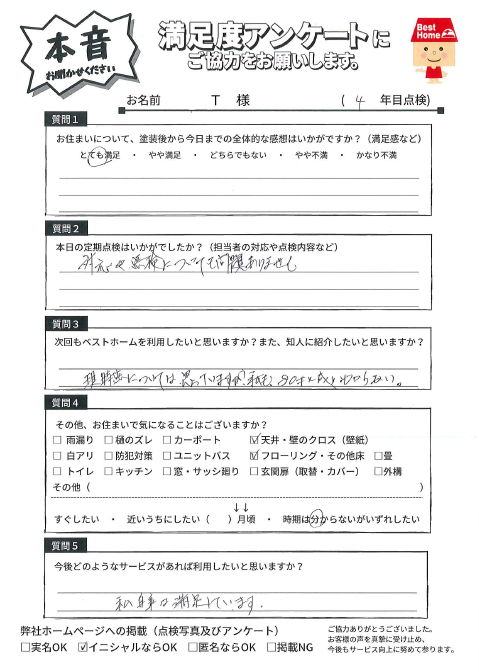 本音
お聞かせください
満足度アンケートに
ご協力をお願いします。
Best
Home
お名前 T 様 ( 4 年目点検)
質問1
お住まいについて、塗装後から今日までの全体的な感想はいかがですか？（満足感など）
とても満足 ・ やや満足 ・ どちらでもない ・ やや不満 ・ かなり不満
質問2
本日の定期点検はいかがでしたか？（担当者の対応や点検内容など）
対応や点検についても問題ありません
質問3
次回もベストホームを利用したいと思いますか？また、知人に紹介したいと思いますか？
現時点については思っていますが、私も
質問4
その他、お住まいで気になることはございますか？
□ 雨漏り □ 樋のズレ □ カーポート ☑ 天井・壁のクロス（壁紙）
□ 白アリ □ 防犯対策 □ ユニットバス ☑ フローリング・その他床 □ 畳
□ トイレ □ キッチン □ 窓・サッシ廻り □ 玄関扉（取替・カバー） □ 外構
その他（ ）
↓↓
すぐしたい ・ 近いうちにしたい（ ）月頃 ・ 時期は分からないがいずれしたい
質問5
今後どのようなサービスがあれば利用したいと思いますか？
私自身は満足しています.
弊社ホームページへの掲載（点検写真及びアンケート）
□実名OK ☑イニシャルならOK □匿名ならOK □掲載NG
ご協力ありがとうございました。
お客様の声を真摯に受け止め、
今後もサービス向上に努めて参ります。